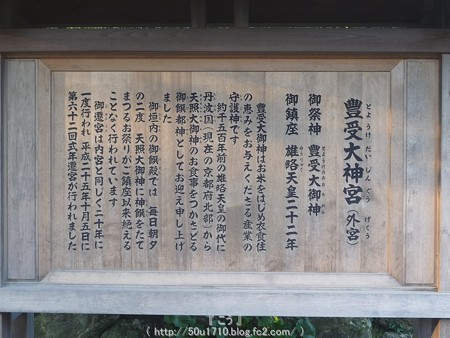 豊受大神宮（外宮）
とようけだいじんぐう　げくう
御祭神　豊受大御神
御鎮座　雄略天皇二十二年
豊受大御神はお米をはじめ衣食住
の恵みをお与えくださる産業の
守護神です
約千五百年前の雄略天皇の御代に
丹波国（現在の京都府北部）から
天照大御神のお食事をつかさどる
御饌都神としてお迎え申し上げ
ました
御垣内の御饌殿では　毎日朝夕
の二度　天照大御神に神饌をたて
まつるお祭りがご鎮座以来絶える
ことなく行われています
御遷宮は内宮と同じく二十年に
一度行われ　平成二十五年十月五日に
第六十二回式年遷宮が行われました
( http://50u1710.blog.fc2.com/ )